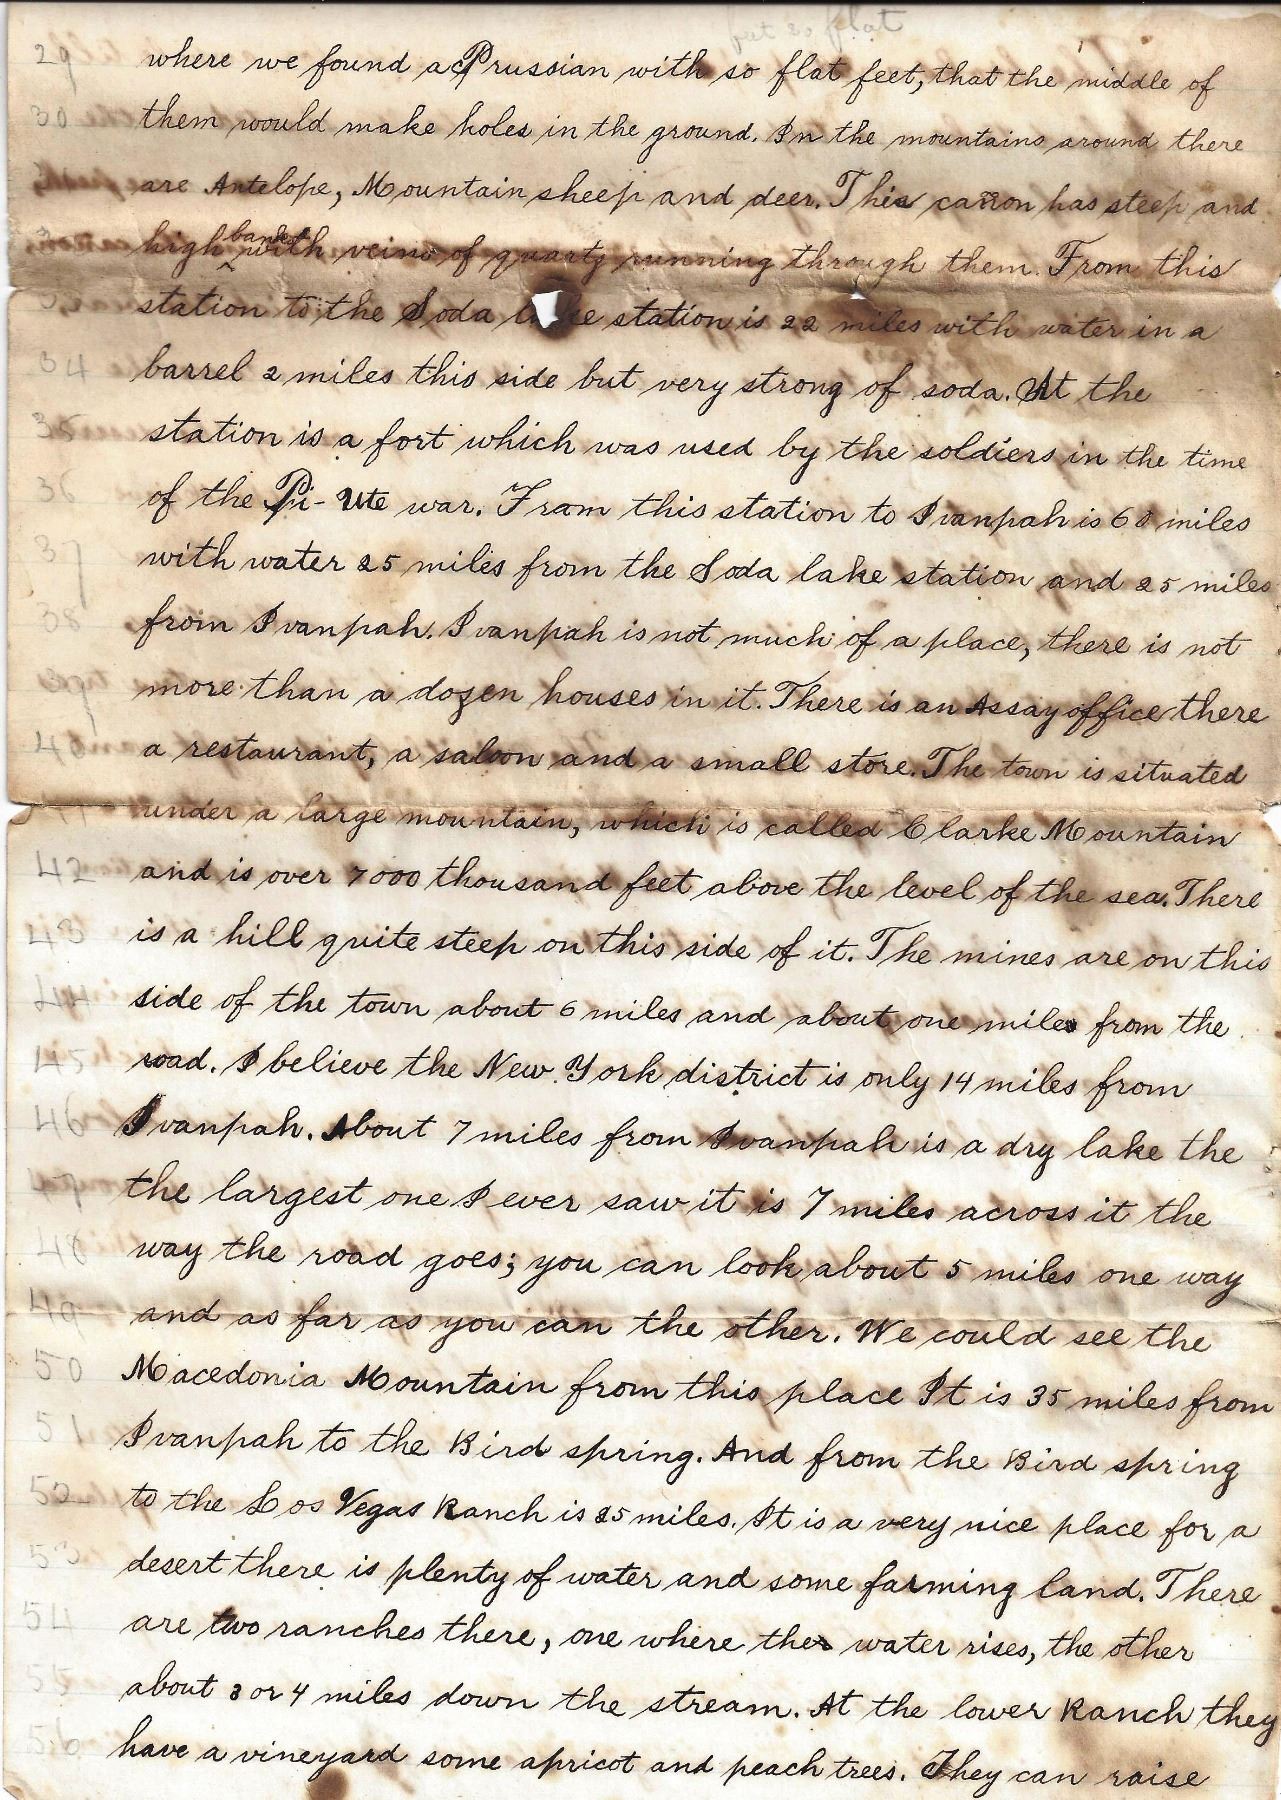 feet so flat
29 where we found a Prussian with so flat feet, that the middle of
30 them would make holes in the ground. In the mountains around there
are Antelope, Mountain sheep and deer. This cañon has steep and
high banks with veins of quartz running through them. From this
station to the Soda lake station is 22 miles with water in a
34 barrel 2 miles this side but very strong of soda. At the
35 station is a fort which was used by the soldiers in the time
36 of the Pi-Ute war. From this station to Ivanpah is 60 miles
37 with water 25 miles from the Soda lake station and 25 miles
38 from Ivanpah. Ivanpah is not much of a place, there is not
more than a dozen houses in it. There is an Assay office there
40 a restaurant, a saloon and a small store. The town is situated
under a large mountain, which is called Clarke Mountain
42 and is over 7000 thousand feet above the level of the sea. There
43 is a hill quite steep on this side of it. The mines are on this
44 side of the town about 6 miles and about one mile from the
45 road. I believe the New York district is only 14 miles from
46 Ivanpah. About 7 miles from Ivanpah is a dry lake the
47 the largest one I ever saw it is 7 miles across it the
48 way the road goes; you can look about 5 miles one way
49 and as far as you can the other. We could see the
50 Macedonia Mountain from this place It is 35 miles from
51 Ivanpah to the Bird spring. And from the Bird spring
52 to the Los Vegas Ranch is 25 miles. It is a very nice place for a
53 desert there is plenty of water and some farming land. There
54 are two ranches there, one where the water rises, the other
55 about 3 or 4 miles down the stream. At the lower Ranch they
56 have a vineyard some apricot and peach trees. They can raise